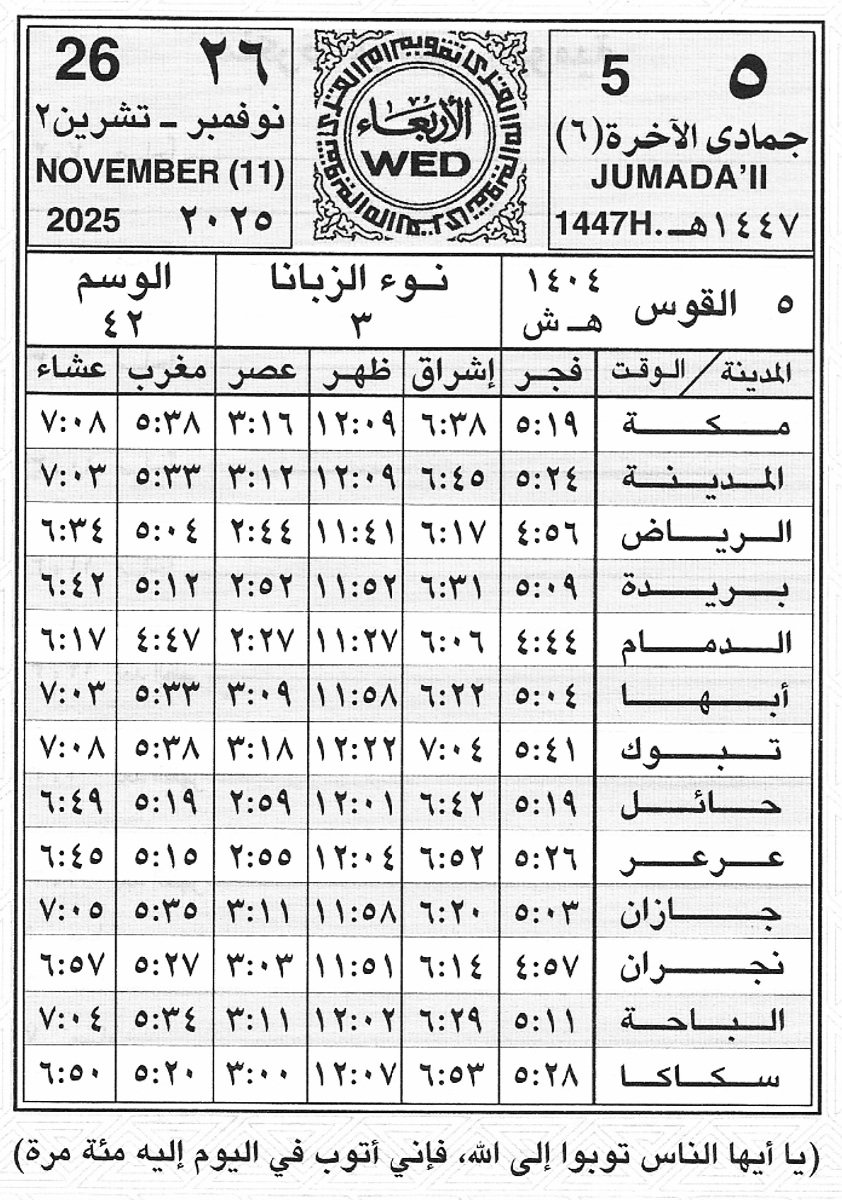 ٥ 5
جمادى الآخرة (٦)
JUMADA'II
1447H. ١٤٤٧هـ
تقويم أم القرى
الأربعاء
WED
26 ٢٦
نوفمبر ـ تشرين٢
NOVEMBER (11)
2025 ٢٠٢٥
٥ القوس ١٤٠٤ هـ ش
نـوء الزبانا ٣
الوسم ٤٢
المدينة / الوقت فجـر إشراق ظهر عصر مغرب عشاء
مكة ٥:١٩ ٦:٣٨ ١٢:٠٩ ٣:١٦ ٥:٣٨ ٧:٠٨
المدينة ٥:٢٤ ٦:٤٥ ١٢:٠٩ ٣:١٢ ٥:٣٣ ٧:٠٣
الرياض ٤:٥٦ ٦:١٧ ١١:٤١ ٢:٤٤ ٥:٠٤ ٦:٣٤
بريدة ٥:٠٩ ٦:٣١ ١١:٥٢ ٢:٥٢ ٥:١٢ ٦:٤٢
الدمام ٤:٤٤ ٦:٠٦ ١١:٢٧ ٢:٢٧ ٤:٤٧ ٦:١٧
أبها ٥:٠٤ ٦:٢٢ ١١:٥٨ ٣:٠٩ ٥:٣٣ ٧:٠٣
تبوك ٥:٤١ ٧:٠٤ ١٢:٢٢ ٣:١٨ ٥:٣٨ ٧:٠٨
حائل ٥:١٩ ٦:٤٢ ١٢:٠١ ٢:٥٩ ٥:١٩ ٦:٤٩
عرعر ٥:٢٦ ٦:٥٢ ١٢:٠٤ ٢:٥٥ ٥:١٥ ٦:٤٥
جازان ٥:٠٣ ٦:٢٠ ١١:٥٨ ٣:١١ ٥:٣٥ ٧:٠٥
نجران ٤:٥٧ ٦:١٤ ١١:٥١ ٣:٠٣ ٥:٢٧ ٦:٥٧
الباحة ٥:١١ ٦:٢٩ ١٢:٠٢ ٣:١١ ٥:٣٤ ٧:٠٤
سكاكا ٥:٢٨ ٦:٥٣ ١٢:٠٧ ٣:٠٠ ٥:٢٠ ٦:٥٠
(يا أيها الناس توبوا إلى الله، فإني أتوب في اليوم إليه مئة مرة)